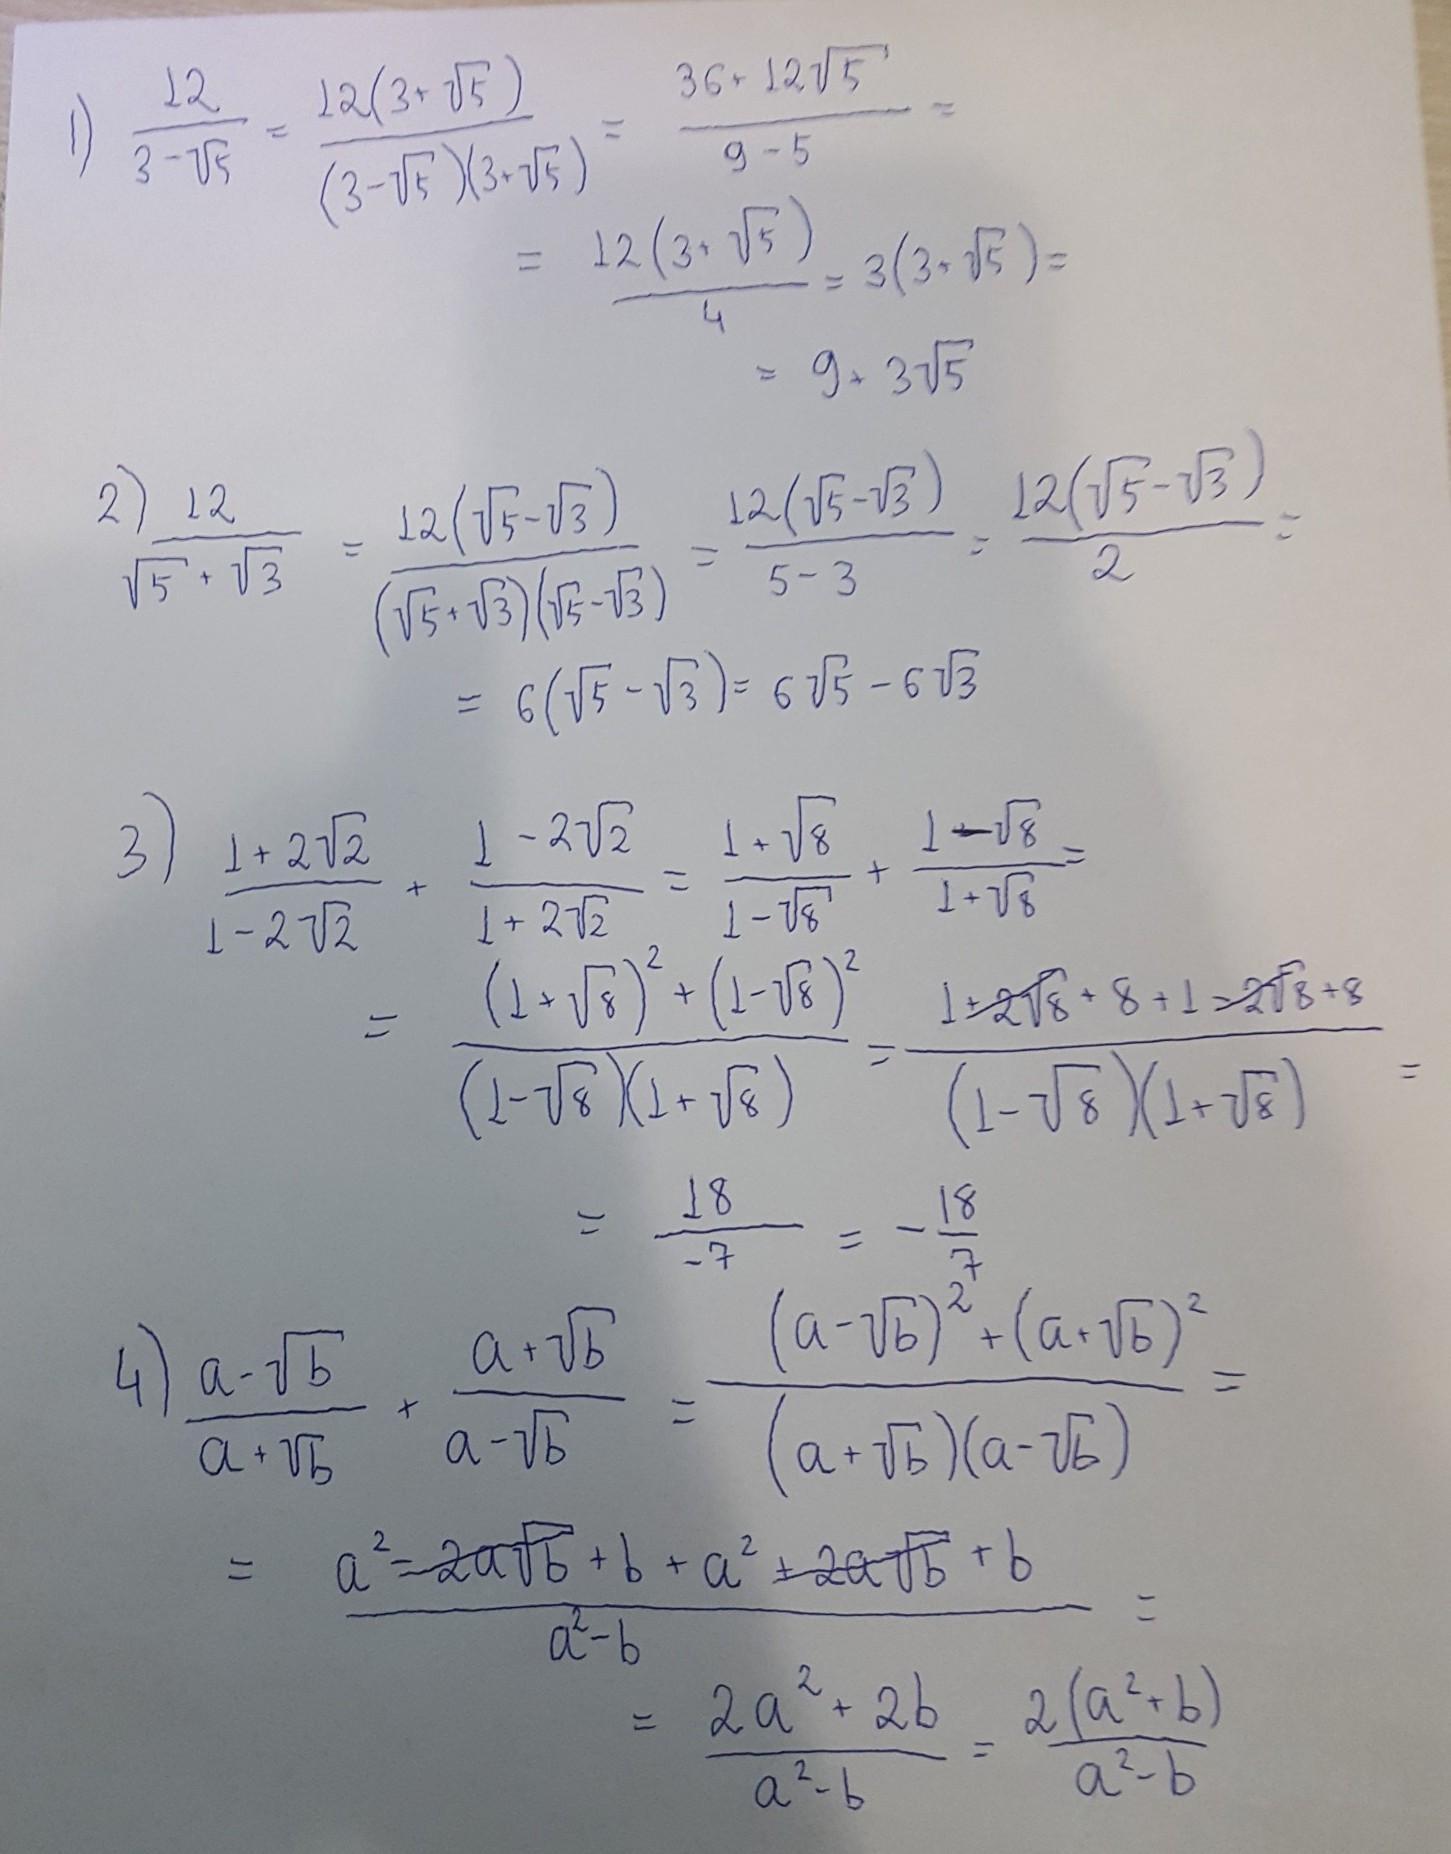 1) 12/(3-√5) = 12(3+√5)/((3-√5)(3+√5)) = (36+12√5)/(9-5) =
= 12(3+√5)/4 = 3(3+√5) =
= 9+3√5
2) 12/(√5+√3) = 12(√5-√3)/((√5+√3)(√5-√3)) = 12(√5-√3)/(5-3) = 12(√5-√3)/2 =
= 6(√5-√3) = 6√5-6√3
3) (1+2√2)/(1-2√2) + (1-2√2)/(1+2√2) = (1+√8)/(1-√8) + (1-√8)/(1+√8) =
= ((1+√8)²+(1-√8)²)/((1-√8)(1+√8)) = (1+2√8+8+1-2√8+8)/((1-√8)(1+√8)) =
= 18/-7 = -18/7
4) (a-√b)/(a+√b) + (a+√b)/(a-√b) = ((a-√b)²+(a+√b)²)/((a+√b)(a-√b)) =
= (a²-2a√b+b+a²+2a√b+b)/(a²-b) =
= (2a²+2b)/(a²-b) = 2(a²+b)/(a²-b)